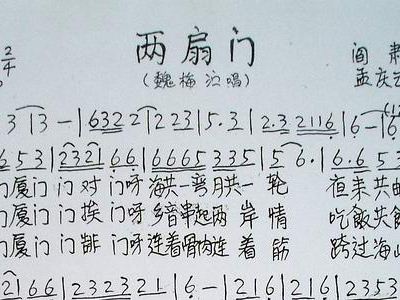 两扇门
2/4 阎肃
(魏梅 演唱) 孟庆
3 | 3 - | 632 2 | 223 | 5·3 | 2·3 2116 | 6 - | 6
653 | 2321 66 | 6665 335 | 5 6· | 6·6 53
门厦门 门 对 门呀 海共一弯月共一 轮 夜来共
门厦门 门 挨 门呀 乡音串起两 岸 情 吃饭
门厦门 门 门呀连着骨肉连 着 筋 跨过海
2166 | 232321 | 6 - | 216 | 216 | 2353